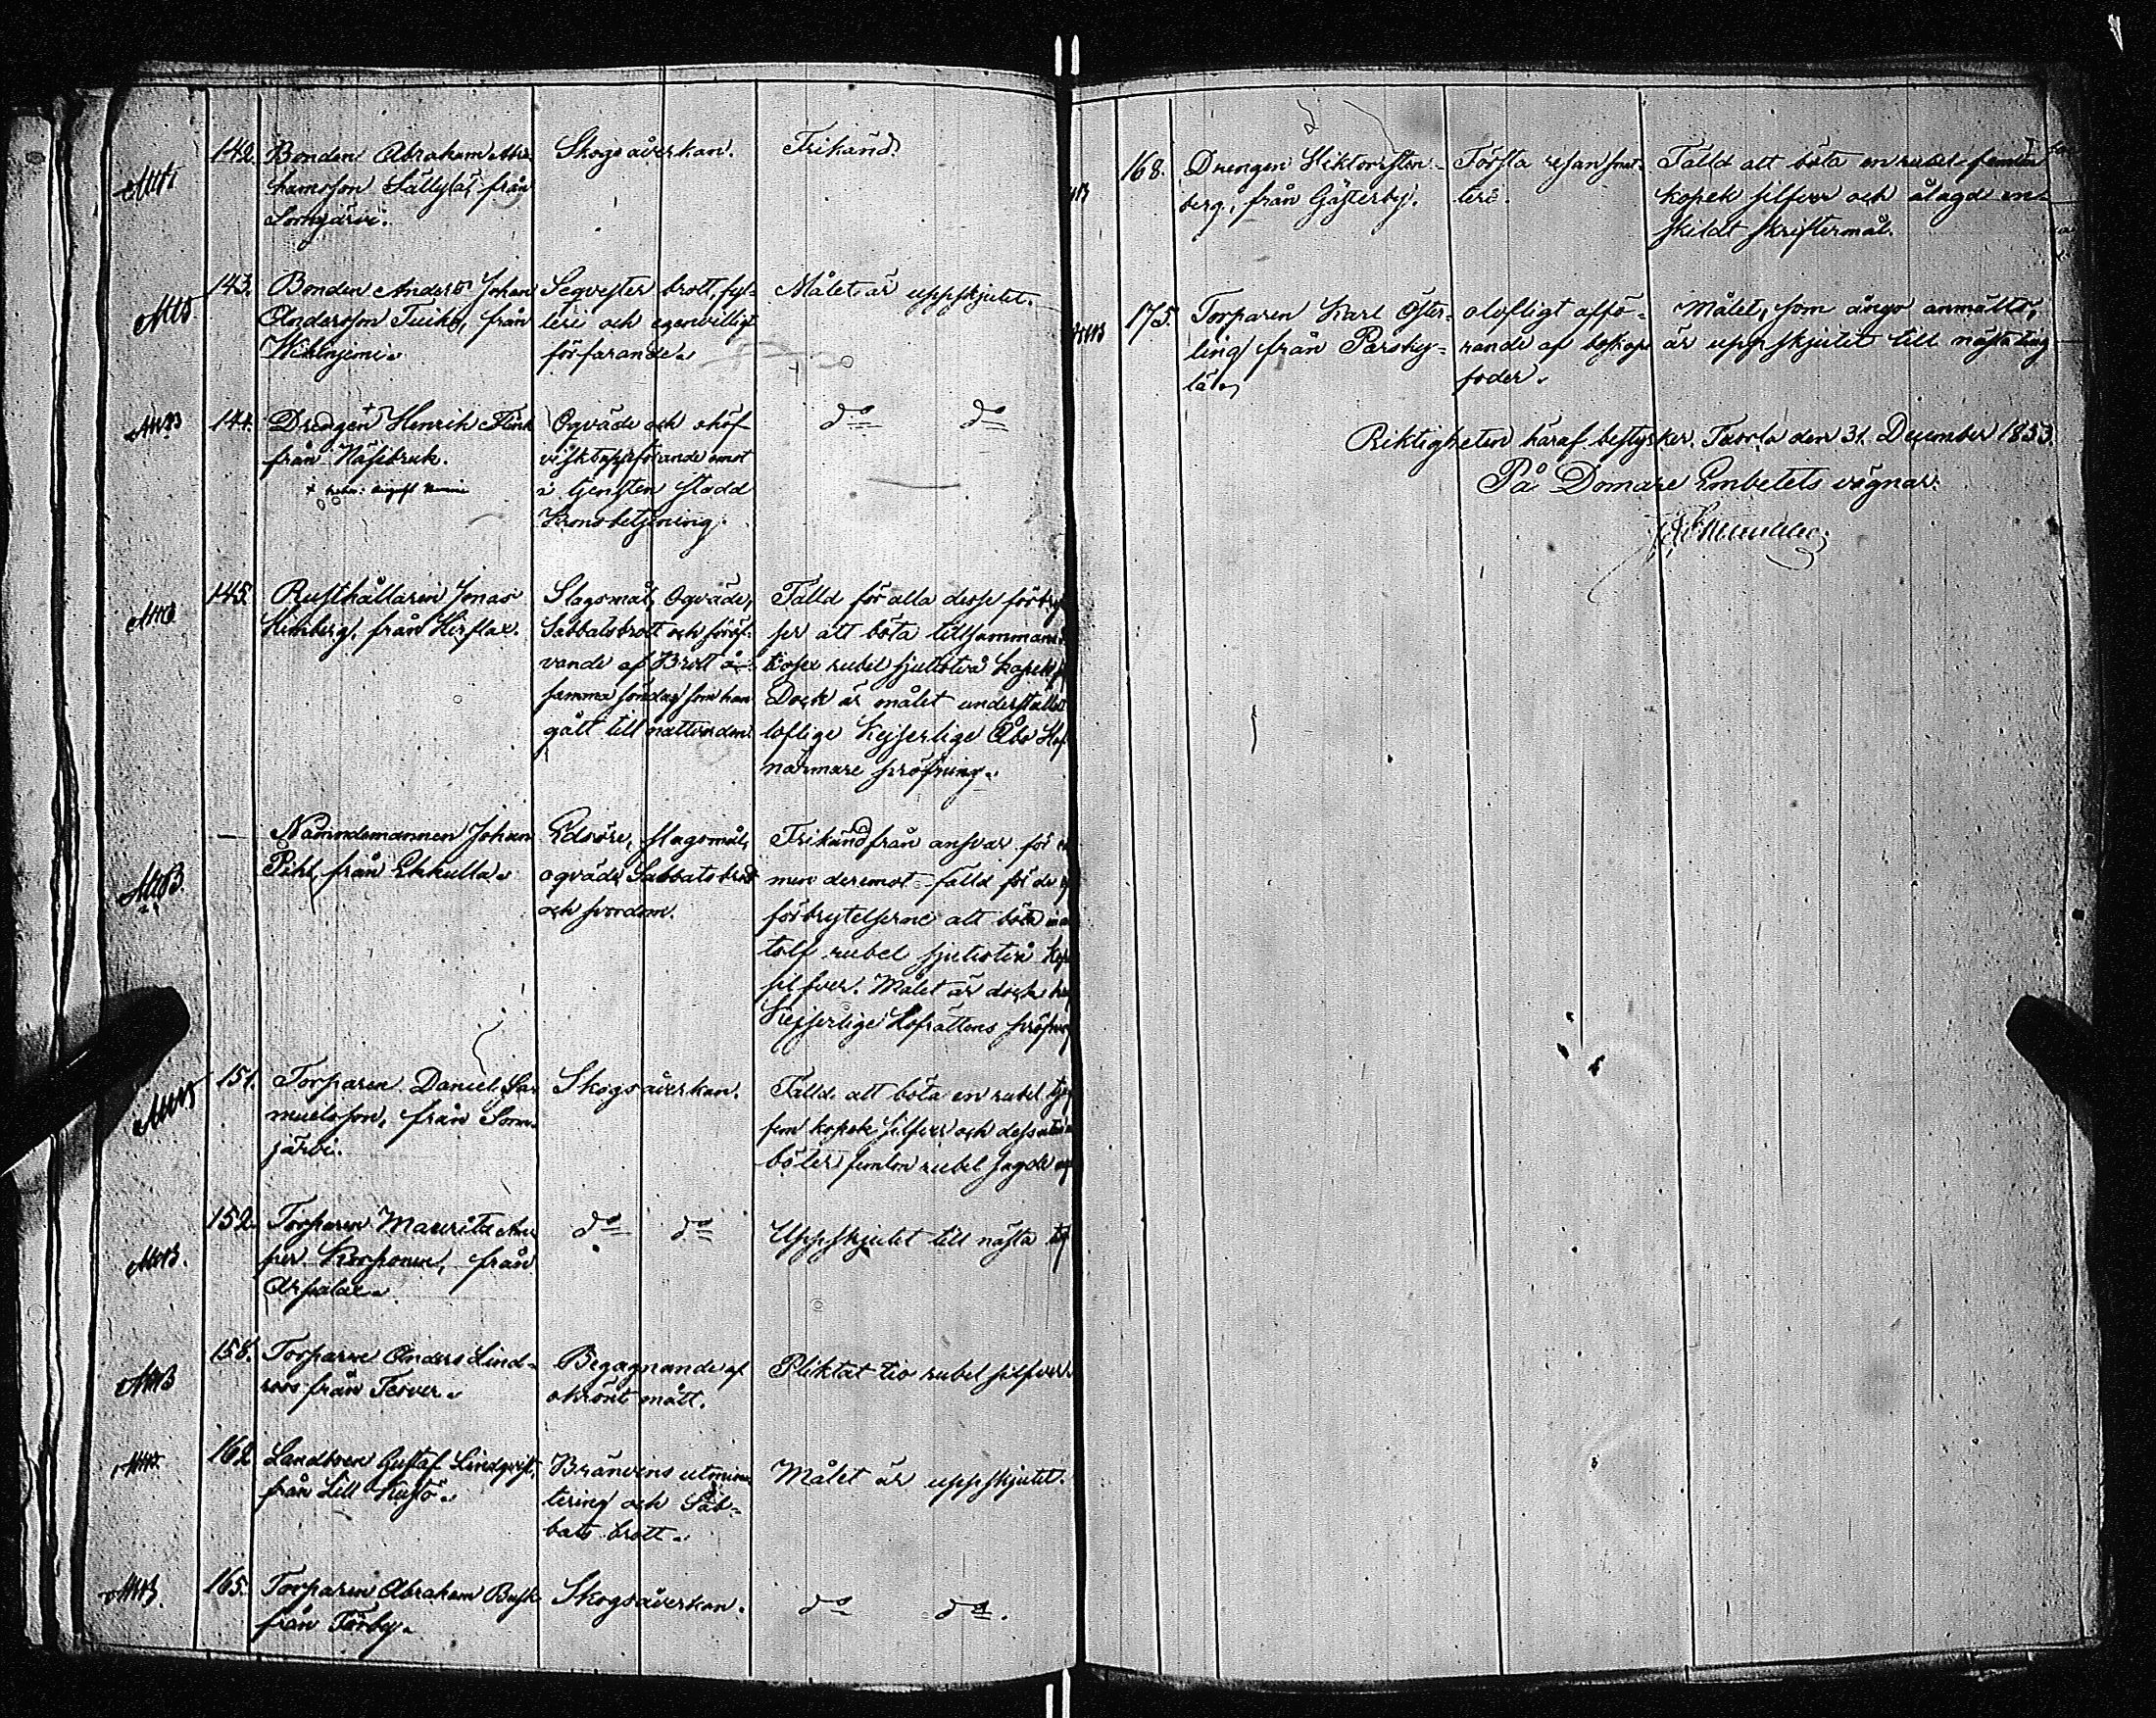 142. Bonden Abraham Abra-
hamsson Sällylä, från
Somerjärvi.
Skogsåverkan.
Frikänd.
143. Bonden Anders Johan
Andersson Tuiku, från
Wihiniemi.
Seqvester brott, fyl-
leri och egenvilligt
förfarande.
Målet är uppskjutet.
144. Drengen Henrik Flink
från Näsebruk.
Oqväde och ohöf-
viskt uppförande emot
i tjensten stadd
Kronobetjening.
do do
145. Rusthållaren Jonas
Himberg, från Hirslax.
Slagsmål, Oqväde,
Sabbatsbrott och föröf-
vande af Brott å
samma söndag som han
gått till nattvarden.
Fälld för alla desse förbry
ser att böta tillsammans
tiosex rubel sjuttiotvå kopek
Dock är målet understäldt
loflige Kejserlige Åbo Hof
närmare pröfning.
— Nämndemannen Johan
Pihl, från Ekkulla.
Edsöre, slagsmål,
oqväde Sabbatsbrott
och svordom.
Frikänd från ansvar för
men deremot fälld för de
förbrytelserne att böta
tolf rubel sjuttiotvå kop
silfver. Målet är dock
Kejserlige Hofrättens pröfning
151. Torparen Daniel Sa-
muelsson, från Som-
järvi.
Skogsåverkan.
Fälld att böta en rubel
fem kopek silfver och dessutom
böter femton rubel
152. Torparen Mauritz
Korponen, från
Arpalax.
do do
Uppskjutet till nästa
158. Torparen Anders Lind-
roos från Tesver.
Begagnande af
okrönt mått.
Pliktat tio rubel silfver
162. Landboen Gustaf Lindqvist,
från Lill Kustö.
Bränvins utminu-
tering och Sab-
bats brott.
Målet är uppskjutet.
165. Torparen Abraham Busk
från Törby.
Skogsåverkan.
do do.
168. Drengen Wiktor Sten-
berg, från Gästerby.
Första resan snat-
teri.
Fälld att böta en rubel femtio
kopek silfver och ålagd en-
skildt skriftermål.
175. Torparen Karl Öster-
ling från Parsky-
lä.
olofligt affö-
rande af boskaps
foder.
Målet, som ånyo anmälts,
är uppskjutet till nästa ting
Riktigheten häraf bestyrker. Tuorla den 31. December 1853.
På Domare Embetets vägnar: